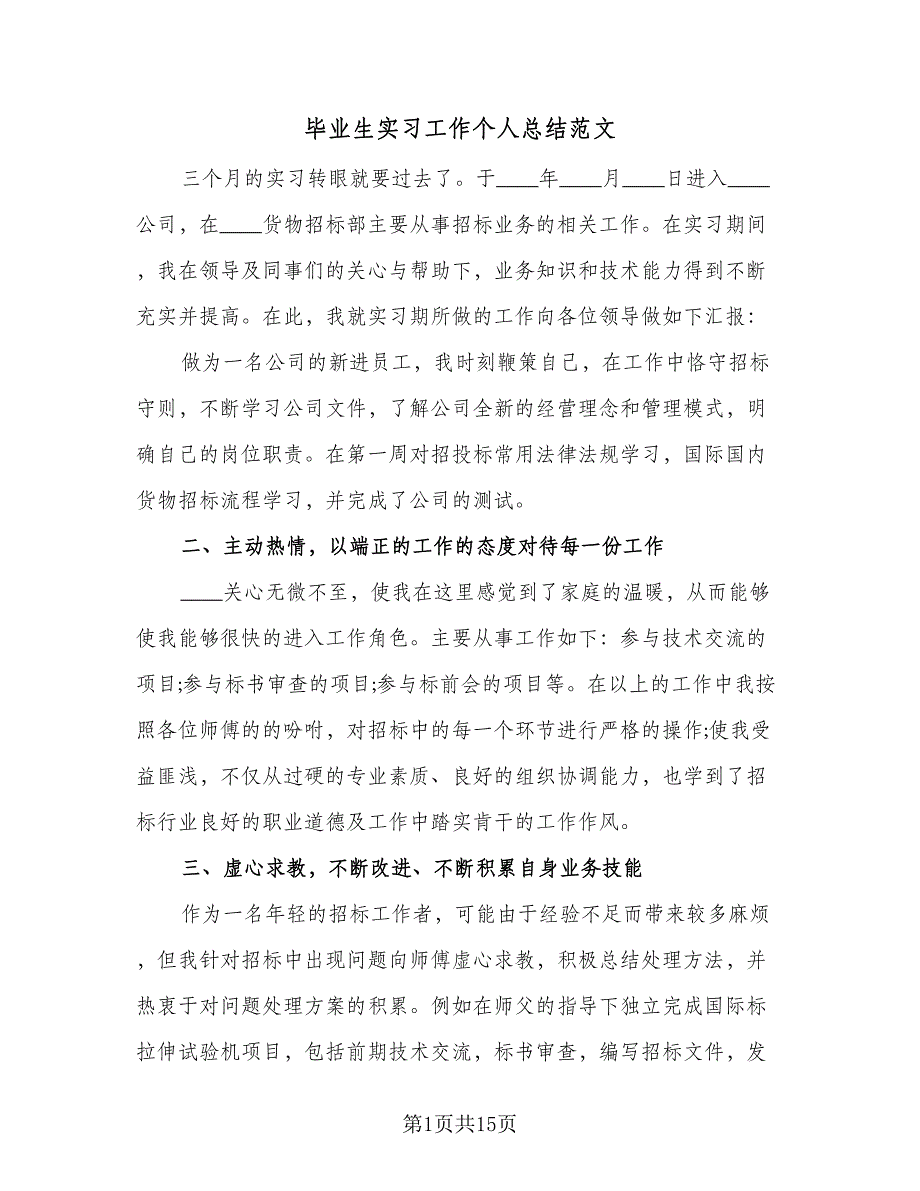 毕业生实习工作个人总结范文
三个月的实习转眼就要过去了。于____年____月____日进入____
公司，在____货物招标部主要从事招标业务的相关工作。在实习期间
，我在领导及同事们的关心与帮助下，业务知识和技术能力得到不断
充实并提高。在此，我就实习期所做的工作向各位领导做如下汇报：
做为一名公司的新进员工，我时刻鞭策自己，在工作中恪守招标
守则，不断学习公司文件，了解公司全新的经营理念和管理模式，明
确自己的岗位职责。在第一周对招投标常用法律法规学习，国际国内
货物招标流程学习，并完成了公司的测试。
二、主动热情，以端正的工作的态度对待每一份工作
____关心无微不至，使我在这里感觉到了家庭的温暖，从而能够
使我能够很快的进入工作角色。主要从事工作如下：参与技术交流的
项目;参与标书审查的项目;参与标前会的项目等。在以上的工作中我按
照各位师傅的的吩咐，对招标中的每一个环节进行严格的操作;使我受
益匪浅，不仅从过硬的专业素质、良好的组织协调能力，也学到了招
标行业良好的职业道德及工作中踏实肯干的工作作风。
三、虚心求教，不断改进、不断积累自身业务技能
作为一名年轻的招标工作者，可能由于经验不足而带来较多麻烦
，但我针对招标中出现问题向师傅虚心求教，积极总结处理方法，并
热衷于对问题处理方案的积累。例如在师父的指导下独立完成国际标
拉伸试验机项目，包括前期技术交流，标书审查，编写招标文件，发
第1页共15页